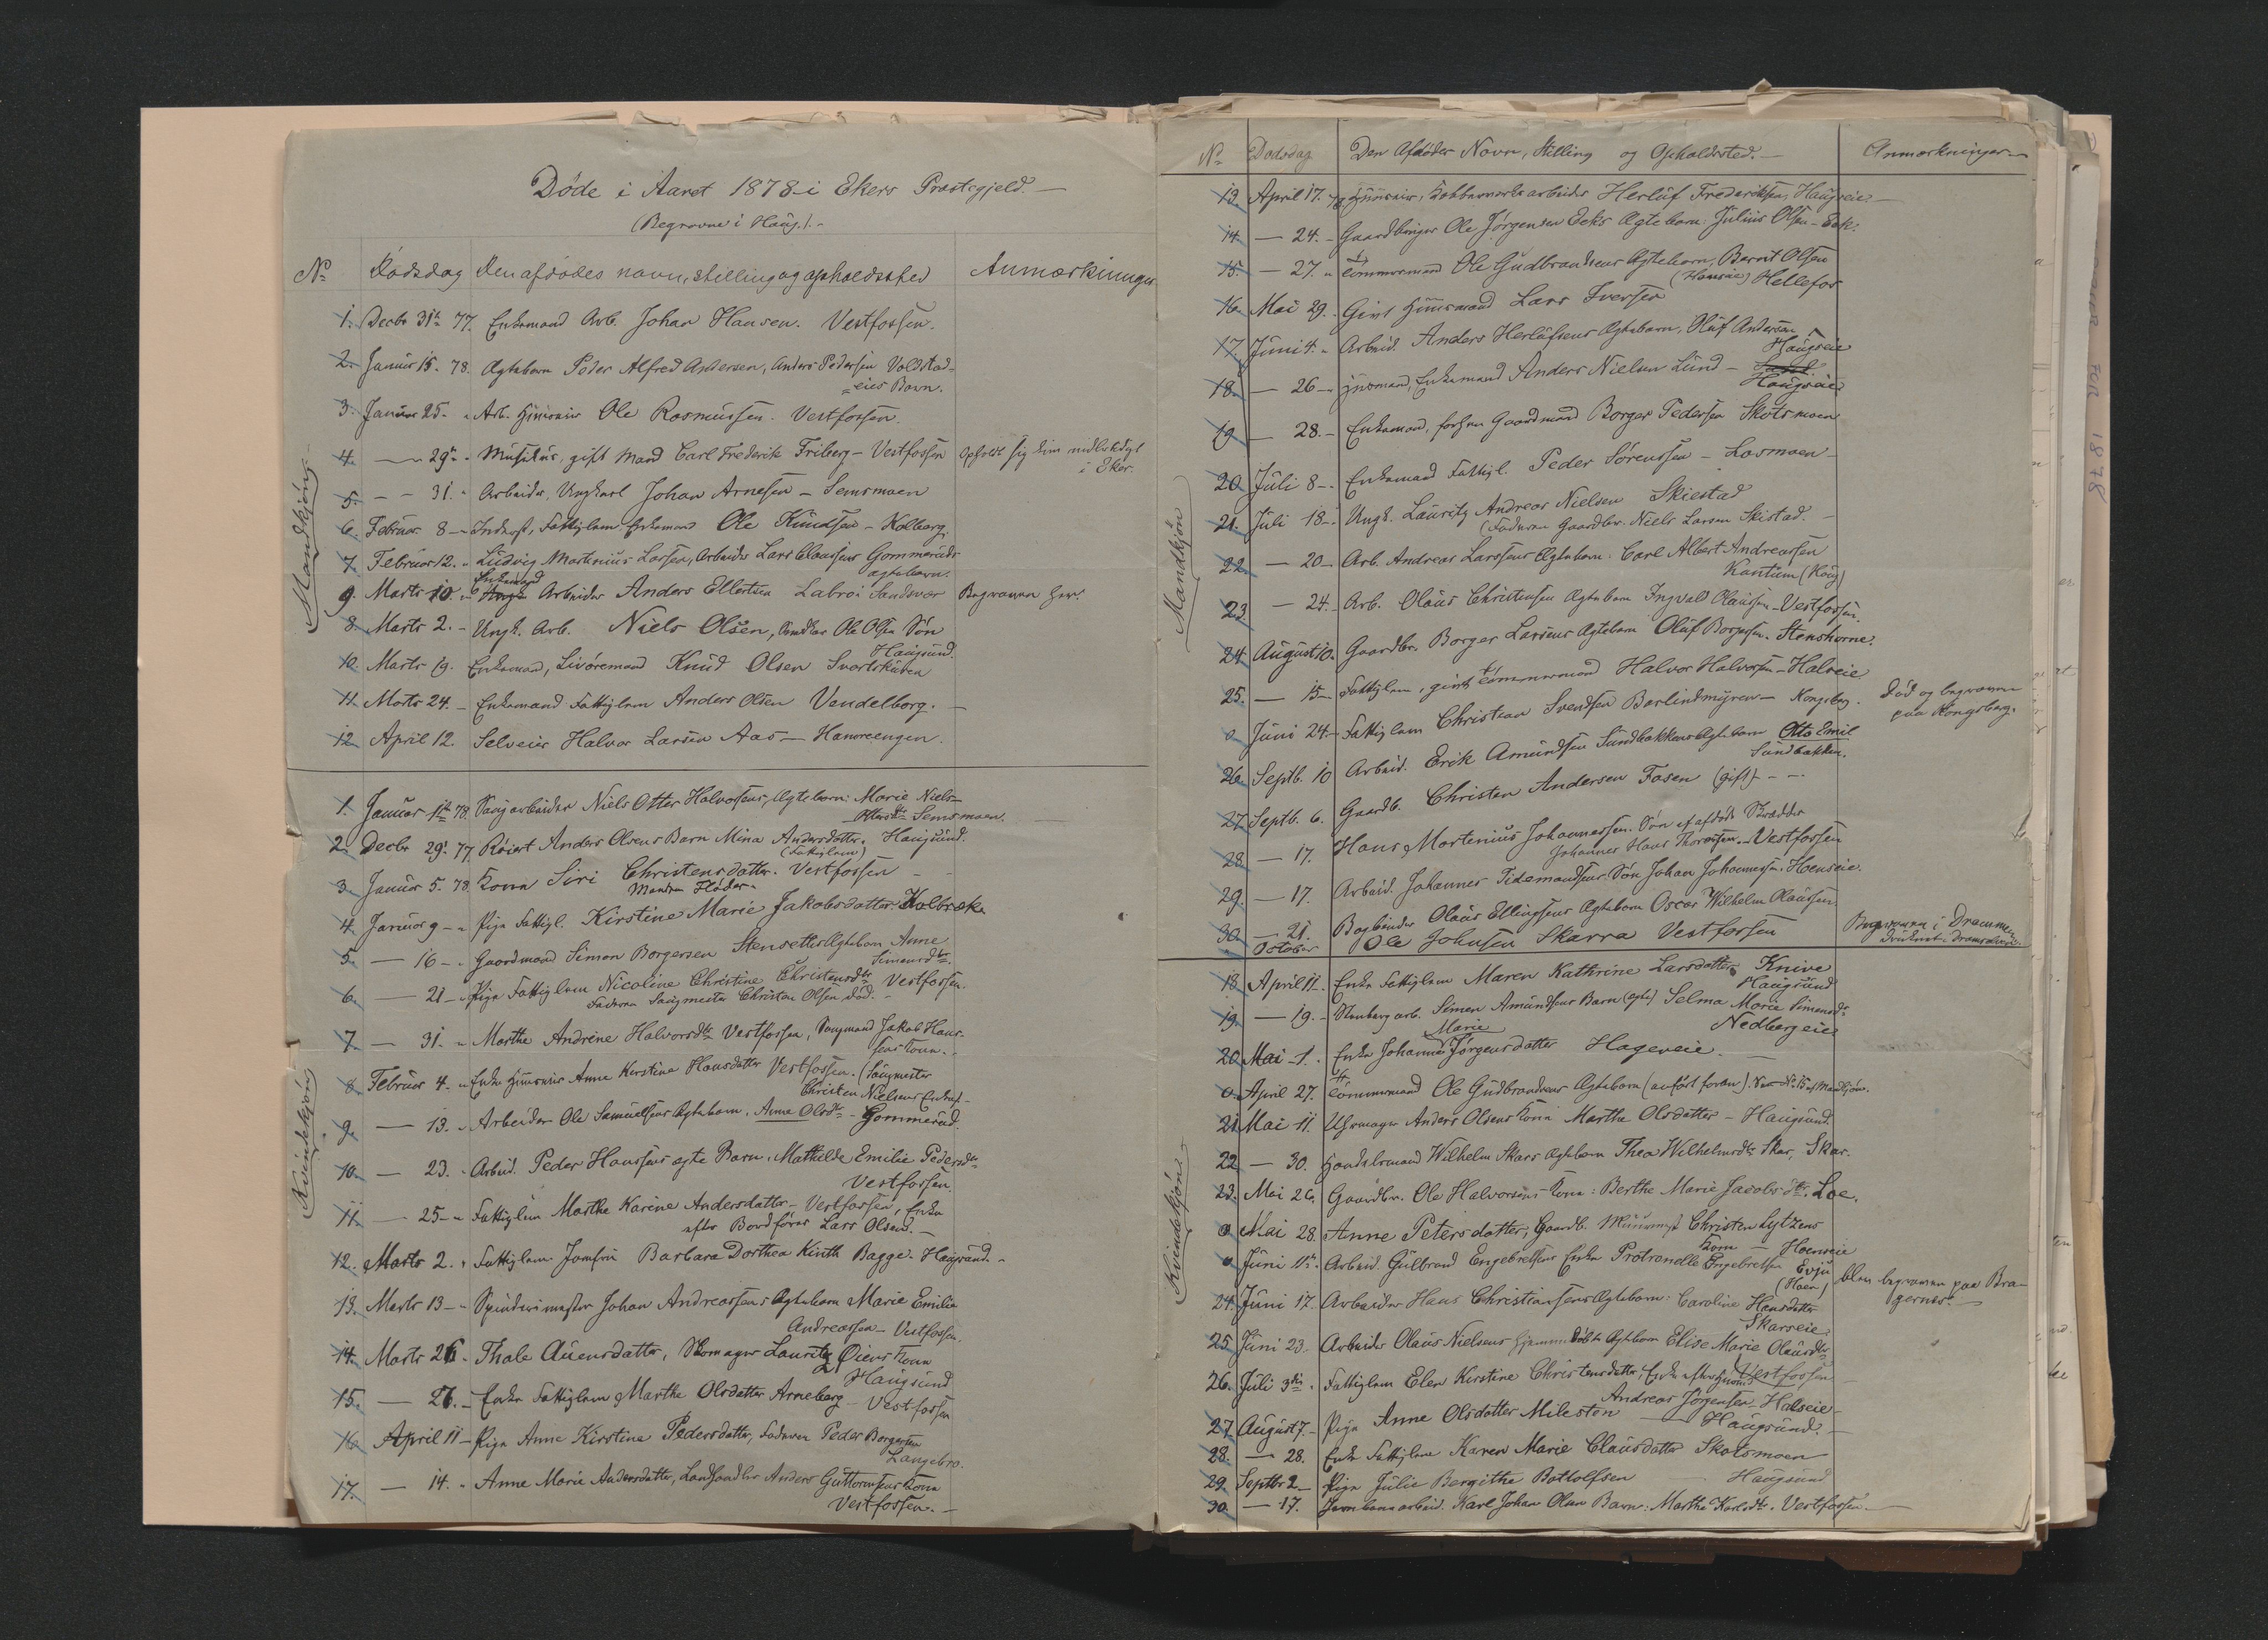 Døde i Aaret 1878 i Ekers Præstegjeld. —
(Begravne i Haug.). –
No Dødsdag Den afdødes navn, stilling og opholdssted Anmærkninger
Mandkjøn
1. Decbr 31te 77. Enkemand Arb. Johan Hansen. Vestfossen.
2. Januar 15. 78. Ægtebarn Peder Alfred Andersen, Anders Pedersen Voldstad-
eies Barn.
3. Januar 25. " Arb. Huuseier Ole Rasmussen. Vestfossen.
4. — 29de " Musikus, gift Mand Carl Frederik Friberg – Vestfossen Opholdt sig kun midlertidigt
i Eker.
5. — 31. " Arbeider, Ungkarl Johan Arnesen – Semsmoen
6. Februar 8 – Inderst, Fattiglem Enkemand Ole Knudsen – Kolberg.
7. Februar 12. " Ludvig Martinius Larsen, Arbeider Lars Claussens Gommeruds
ægtebarn.
Enkemand
9. Marts 10. " Arbeider Anders Ellertsen Labroi Sandsvær Begraven her.
8. Marts 2. – Ungk. Arb. Niels Olsen, Ole Olsen Søn
Haugsund.
10. Marts 19. Enkemand, Livøremand Knud Olsen Svartskuren
11. Marts 24. – Enkemand Fattiglem Anders Olsen Vendelborg. —
12. April 12. Selveier Halvor Larsen Aas – Hanreengen.
Kvindekjøn
1. Januar 1ste 78. Saugarbeider Niels Otter Halvorsens, Ægtebarn: Marie Niels-
Ottersdtr Semsmoen.
2. Decbr 29. 77. Anders Olsens Barn Mina Andersdatter. Haugsund.
(Fattiglem)
3. Januar 5. 78. Kone Siri Christensdatter. Vestfossen
Manden Fløder
4. Januar 9 – " Pige Fattigl. Kirstine Marie Jakobsdatter Kolbræk
5. — 16 – " Gaardmand Simon Borgersen Stensethes Ægtebarn Anne
Simensdtr.
6. — 21 – " Pige Fattiglem Nicoline Christine Christensdtr Vestfossen.
Faderen Saugmester Christen Olsen død. –
7. — 31. " Marthe Andrine Halvorsdtr Vestfossen, Saugmand Jakob Hans-
sens Kone. –
8. Februar 4. " Enke Huuseier Anne Kirstine Hansdatter Vestfossen. (Saugmester
Christen Nielsens Enke)
9. — 13. " Arbeider Ole Samuelsens Ægtebarn. Anne Olsdtr – Gommerud.
10. — 23. " Arbeid. Peder Hanssens ægte Barn, Mathilde Emilie Pedersdtr
Vestfossen.
11. — 25 – " Fattiglem Marthe Karine Andersdatter – Vestfossen, Enke
efter Bordfører Lars Olsen. —
12. Marts 2. " Fattiglem Jomfru Barbara Dorthea Kinth Bagge. Haugsund. –
13. Marts 13 – " Spinderimester Johan Andreassens Ægtebarn Marie Emilie
Andreassen – Vestfossen.
14. Marts 26 – Thale Auensdatter, Skomager Lauritz Øiens Kone
Haugsund
15. — 26. – Enke Fattiglem Marthe Olsdatter Arneberg – Vestfossen
16. April 11 – Pige Anne Kirstine Pedersdatter, Faderen Peder Borgersen
Langebro.
17. — 14. " Anne Marie Andersdatter, Landhandler Anders Guttormsens Kone
Vestfossen. –
No Dødsdag Den Afdødes Navn, Stilling og Opholdssted. — Anmærkninger
Mandkjøn
13. April 17. 78 Huuseier, Kobberværksarbeider Herluf Frederiksen, Haugseie. —
14. — 24. – Gaardbruger Ole Jørgensen Eeks Ægtebarn: Julius Olsen – Eek.
15. — 27. " Tømmermand Ole Gudbrandsens Ægtebarn, Bernt Olsen
(Hoenseie) Hellefos
16. Mai 29. – Gift Huusmand Lars Iversen
17. Juni 4. " Arbeid. Anders Herlufsens Ægtebarn, Oluf Andersen
Haugseie
18. — 26 – Huusmand, Enkemand Anders Nielsen Lund –
Haugseie
19 — 28. – Enkemand, forhen Gaardmand Borger Pedersen Skotsmoen
20. Juli 8 – " Enkemand Fattigl. Peder Sørenssen – Losmoen –
21. Juli 18 – " Ungk. Lauritz Andreas Nielsen Skiestad
(Faderen Gaardbr. Niels Larsen Skistad. —
22. — 20 – Arb. Andreas Larssens Ægtebarn: Carl Albert Andreassen
Kantum (Haug)
23 — 24. – Arb. Olaus Christensen Ægtebarn Ingvald Olaussen – Vestfossen.
24. August 10. Gaardbr. Borger Larsens Ægtebarn Oluf Borgersen. Stenshorne.
25. — 15 – Fattiglem, gift Tømmermand Halvor Halvorsen – Halseie
0 Juni 24. – Fattiglem Christian Svendsen Barlindmyren – Kongsberg. død og begraven
paa Kongsberg.
26. Septb. 10 Arbeid. Erik Amundsen Sundbakkens Ægtebarn Otto Emil
Sundbakken.
27. Septb. 6. Gaardb. Christen Andersen Fosen (gift) – – —
28. — 17. Hans Martinius Johannessen. Søn af afdøde Skrædder
Johannes Hans Thoresen. – Vestfossen
29. — 17. Arbeid. Johannes Tidemandsens Søn Johan Johannesen. Hoenseie.
30. — 21. Bogbinder Olaus Ellingsens Ægtebarn Oscar Wilhelm Olaussen.
October Ole Johnsen Skarra Vestfossen Begraven i Drammen
Kvindekjøn
18. April 11. Enke Fattiglem Maren Kathrine Larsdatter Knive
Haugsund
19. — 19. – Arb. Simen Amundsens Barn (ægte) Selma Marie Simensdtr.
Nedbergeie
Marie
20. Mai – 1. Enke Johanne Jørgensdatter Hageneie. —
0. April 27. Tømmermand Ole Gudbrandsens Ægtebarn (anført foran). No 15 af Mandkjøn.
21. Mai 11. Uhrmager Anders Olsens Kone Marthe Olsdatter – Haugsund.
22. — 30. Handelsmand Wilhelm Skars Ægtebarn Thea Wilhelmsdtr Skar, Skar.
23. Mai 26. Gaardbr. Ole Halvorsens Kone: Berthe Marie Jacobsdtr. Loe.
0 Mai 28. Anne Petersdatter, Gaardb. Christen Lytzens
Kone – Hoenseie
0 Juni 11te. Arbeid. Gulbrand Engebretsens Enke Protronelle Engebretsen Evju blev begraven paa Bra-
(Hoen) gernes. —
24. Juni 17. Arbeider Hans Christiansens Ægtebarn: Caroline Hansdatter
Skarseie.
25. Juni 23 – Arbeider Olaus Nielsens hjemmedøbte Ægtebarn Elise Marie Olausdtr
Vestfossen
26. Juli 3die. Fattiglem Elen Kirstine Christensdatter, Enke efter Huusm.
Andreas Jørgensen – Halseie –
27. August 7. – Pige Anne Olsdatter Milesten — Haugsund. —
28. — 28. Enke Fattiglem Karen Marie Clausdatter Skotsmoen
29. Septbr 2 – Pige Julie Bergithe Bottolfsen — Haugsund
30. — 17. Jernbanearbeid. Karl Johan Olsens Barn: Marthe Karlsdtr. Vestfossen. —
1878